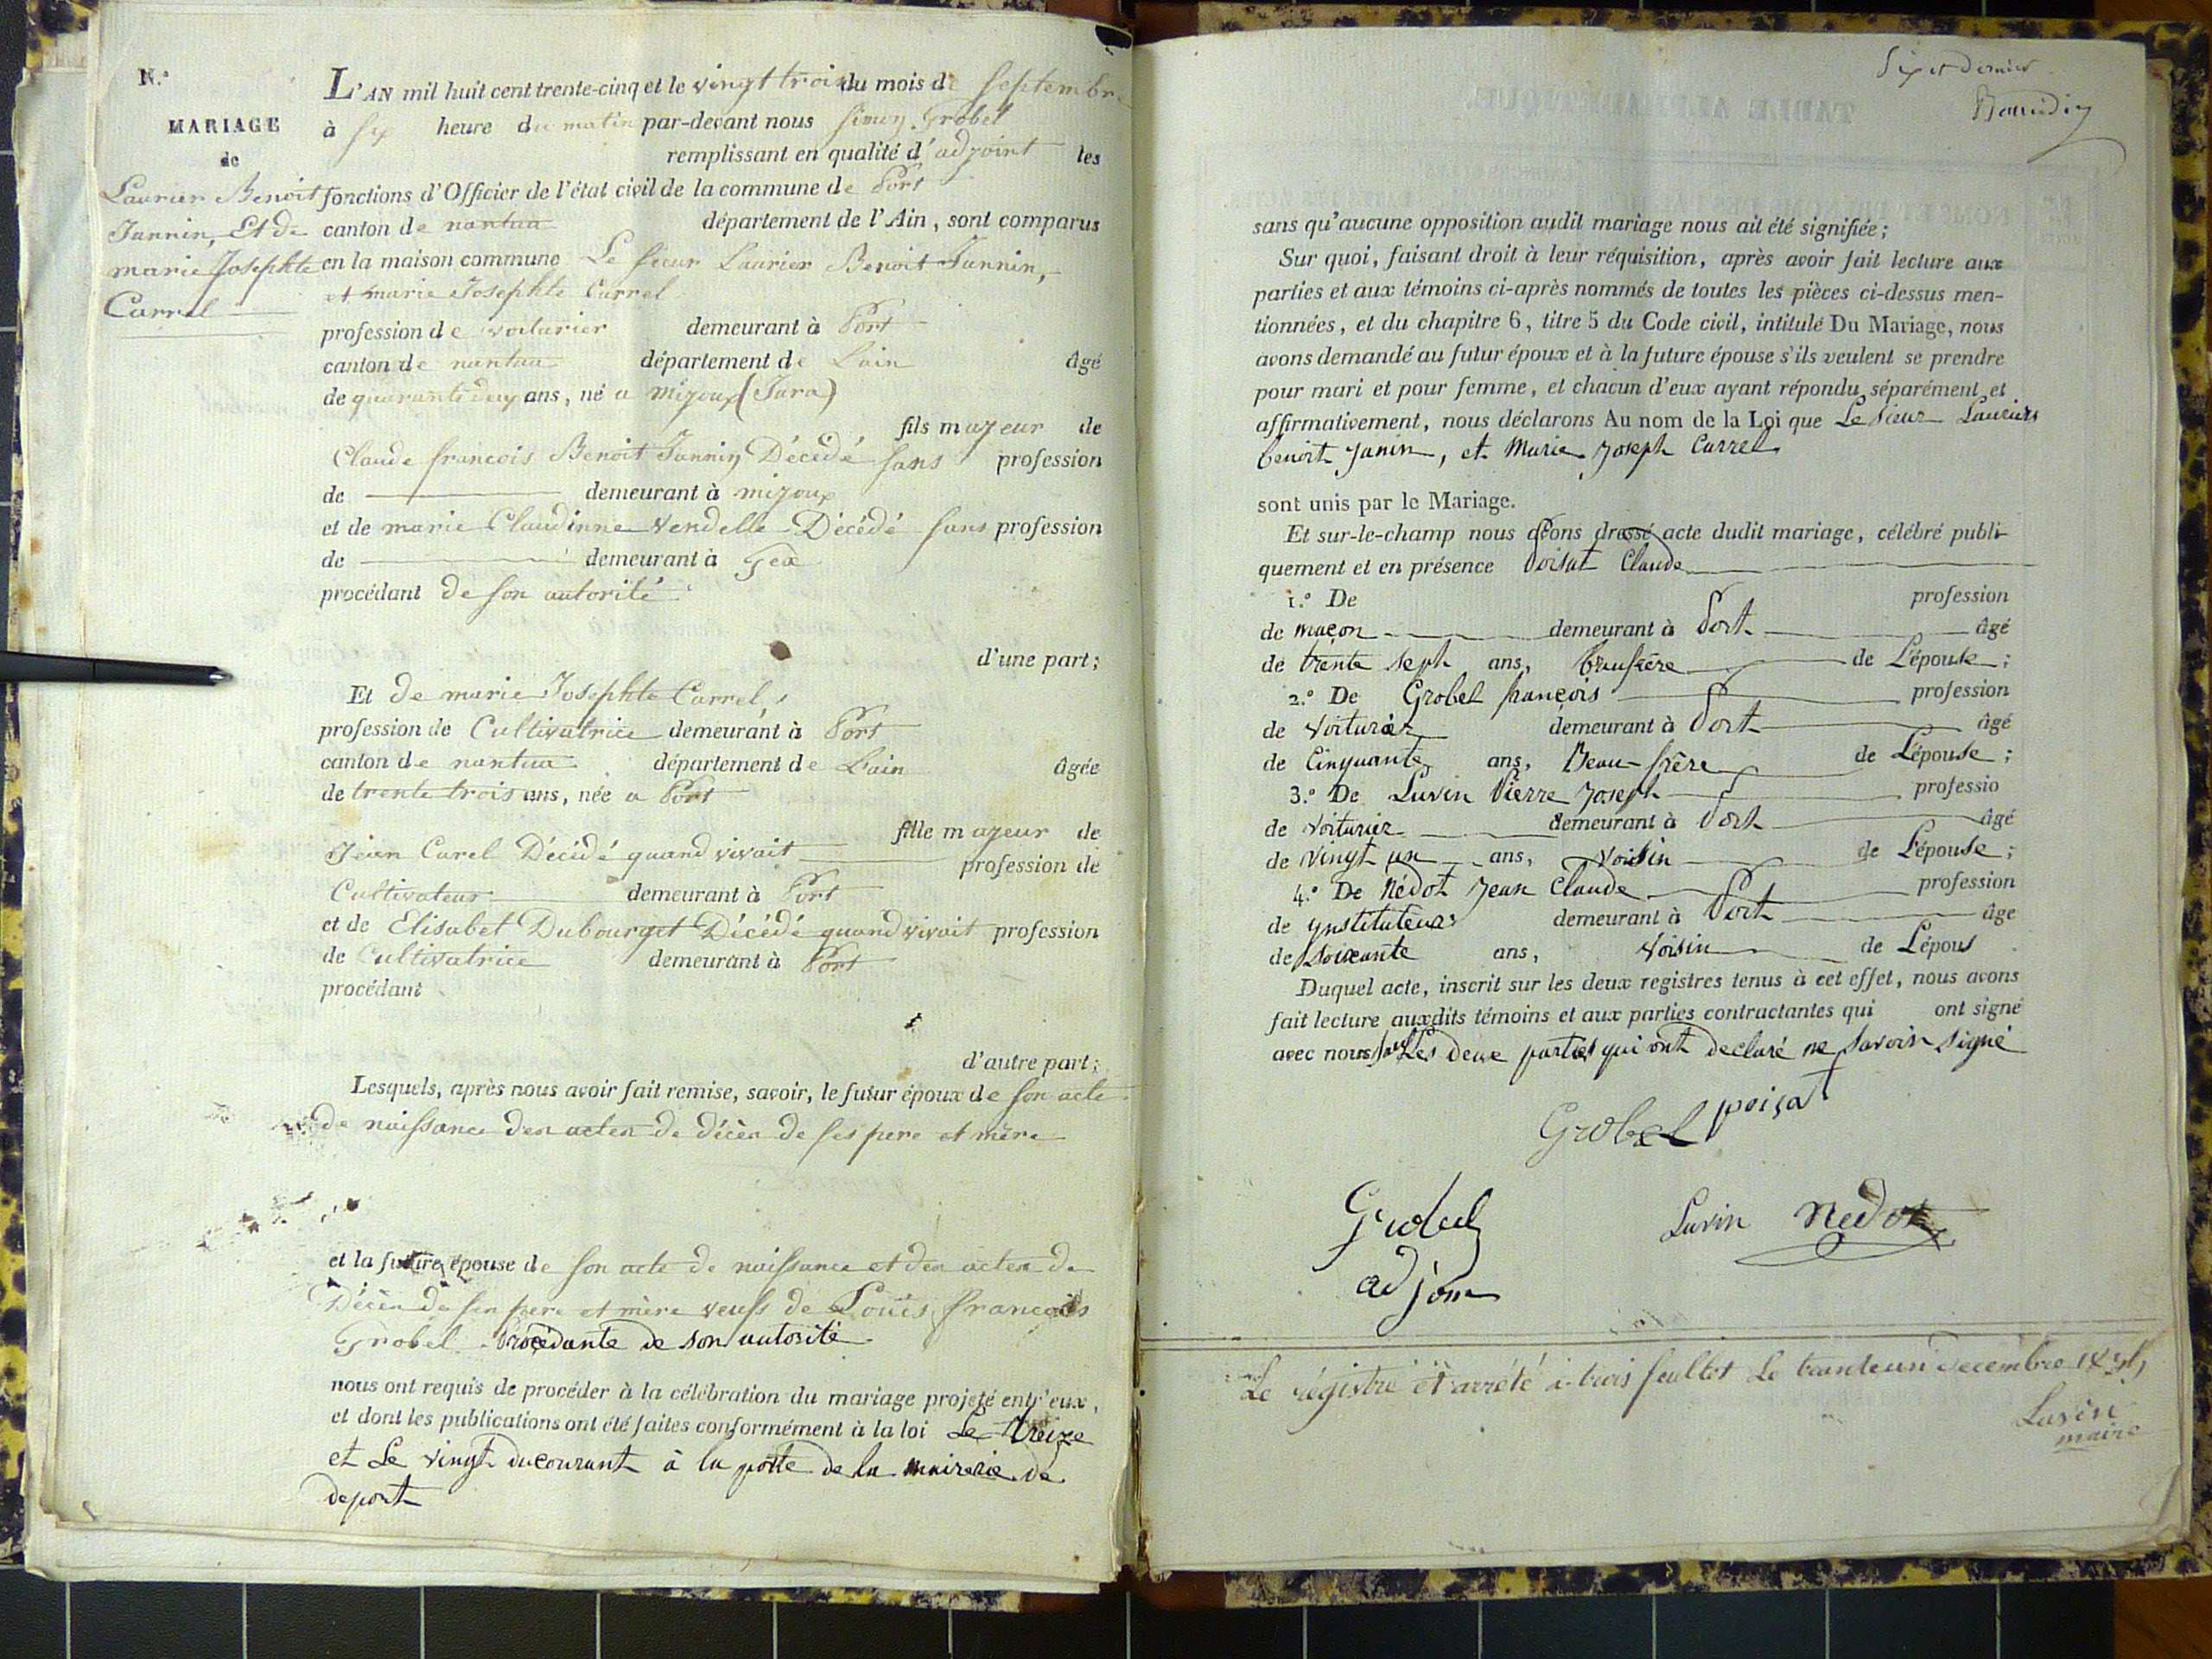 N.°
MARIAGE
de
Laurier Benoit
Jannin, Et de
marie Josephte
Carrel
L'AN mil huit cent trente-cinq et le vingt trois du mois de septembre
à six heure du matin par-devant nous simon Grobel
remplissant en qualité d'adjoint les
fonctions d'Officier de l'état civil de la commune de Port
canton de nantua département de l'Ain, sont comparus
en la maison commune Le sieur Laurier Benoit Jannin,
et marie Josephte Carrel
profession de voiturier demeurant à Port
canton de nantua département de Lain âgé
de quarante deux ans, né a mijoux (Jura)
fils majeur de
Claude francois Benoit Jannin Décédé sans profession
de demeurant à mijoux
et de marie Claudinne Vendelle Décédé sans profession
de demeurant à Gex
procédant de son autorité
d'une part;
Et de marie Josephte Carrel,
profession de Cultivatrice demeurant à Port
canton de nantua département de Lain âgée
de trente trois ans, née a Port
fille majeur de
Jean Carel Décédé quand vivait profession de
Cultivateur demeurant à Port
et de Elisabet Dubourget Décédé quand vivait profession
de Cultivatrice demeurant à Port
procédant
d'autre part;
Lesquels, après nous avoir fait remise, savoir, le futur époux de son acte
de naissance des actes de décès de ses pere et mère
et la future épouse de son acte de naissance et des actes de
Décès de ses pere et mère veufs de Louis francois
Grobel Procédante de son autorité
nous ont requis de procéder à la célébration du mariage projeté entr'eux,
et dont les publications ont été faites conformément à la loi Le treize
et Le vingt ducourant à la porte de la mairerie de
deport
six et dernier
sans qu'aucune opposition audit mariage nous ait été signifiée;
Sur quoi, faisant droit à leur réquisition, après avoir fait lecture aux
parties et aux témoins ci-après nommés de toutes les pièces ci-dessus men-
tionnées, et du chapitre 6, titre 5 du Code civil, intitulé Du Mariage, nous
avons demandé au futur époux et à la future épouse s'ils veulent se prendre
pour mari et pour femme, et chacun d'eux ayant répondu séparément et
affirmativement, nous déclarons Au nom de la Loi que Le sieur Lauriers
benoit Janin, et Marie Joseph Carrel
sont unis par le Mariage.
Et sur-le-champ nous avons dressé acte dudit mariage, célébré publi-
quement et en présence Poisat Claude
1.° De profession
de maçon demeurant à Port âgé
de trente seph ans, beaufrère de L'épouse;
2.° De Grobel françois profession
de voiturier demeurant à Port âgé
de Cinquante ans, Beau-frère de L'épouse;
3.° De Luvin Pierre Joseph professio
de voiturier demeurant à Port âgé
de vingt un ans, voisin de L'épouse;
4.° De Nédot Jean Claude profession
de ynstituteur demeurant à Port âge
de soixante ans, voisin de L'épous
Duquel acte, inscrit sur les deux registres tenus à cet effet, nous avons
fait lecture auxdits témoins et aux parties contractantes qui ont signé
avec nous sauf Les deux parties qui ont declaré ne savoir signé
Grobel poisat
Grobel Luvin Nedot
adjoin
Le régistre èt arrété à trois feullet Le tranteun decembre 1835
Luvin
maire